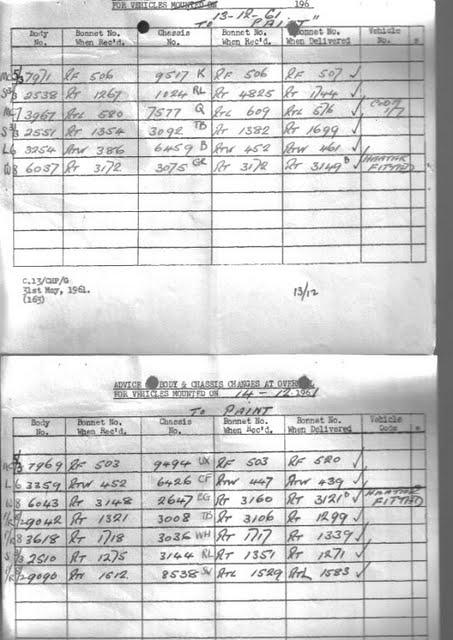 FOR VEHICLES MOUNTED ON 13-12-61 196
"TO PAINT"
Body No. Bonnet No. When Rec'd. Chassis No. Bonnet No. When Rec'd. Bonnet No. When Delivered Vehicle No.
5/3 7971 RF 506 9517 K RF 506 RF 507 ✓
S3/3 2538 RT 1267 1024 RL RT 4825 RT 1744 ✓
7 3967 RTL 580 7577 Q RTL 609 RTL 576 ✓
S3/3 2551 RT 1354 3092 TB RT 1382 RT 1699 ✓
L6 3254 RTW 386 6459 B RTW 452 RTW 461 ✓
W8 6037 RT 3172 3075 GR RT 3172 RT 3149 B ✓ HEATER FITTED
C.13/CHF/G
31st May, 1961.
(163)
13/12
ADVICE BODY & CHASSIS CHANGES AT
FOR VEHICLES MOUNTED ON 14-12-1961
TO PAINT
Body No. Bonnet No. When Rec'd. Chassis No. Bonnet No. When Rec'd. Bonnet No. When Delivered Vehicle Code
5/3 7969 RF 503 9494 UX RF 503 RF 520 ✓
L6 3359 RTW 452 6426 CF RTW 447 RTW 439 ✓
W8 6043 RT 3148 2647 EG RT 3160 RT 3121 D ✓ HEATER FITTED
29042 RT 1321 3008 TB RT 3106 RT 1299 ✓
3618 RT 1718 3036 WH RT 1717 RT 1339 ✓
2510 RT 1275 3144 RL RT 1351 RT 1271 ✓
29090 1612 8538 RTL 1529 RTL 1583 ✓